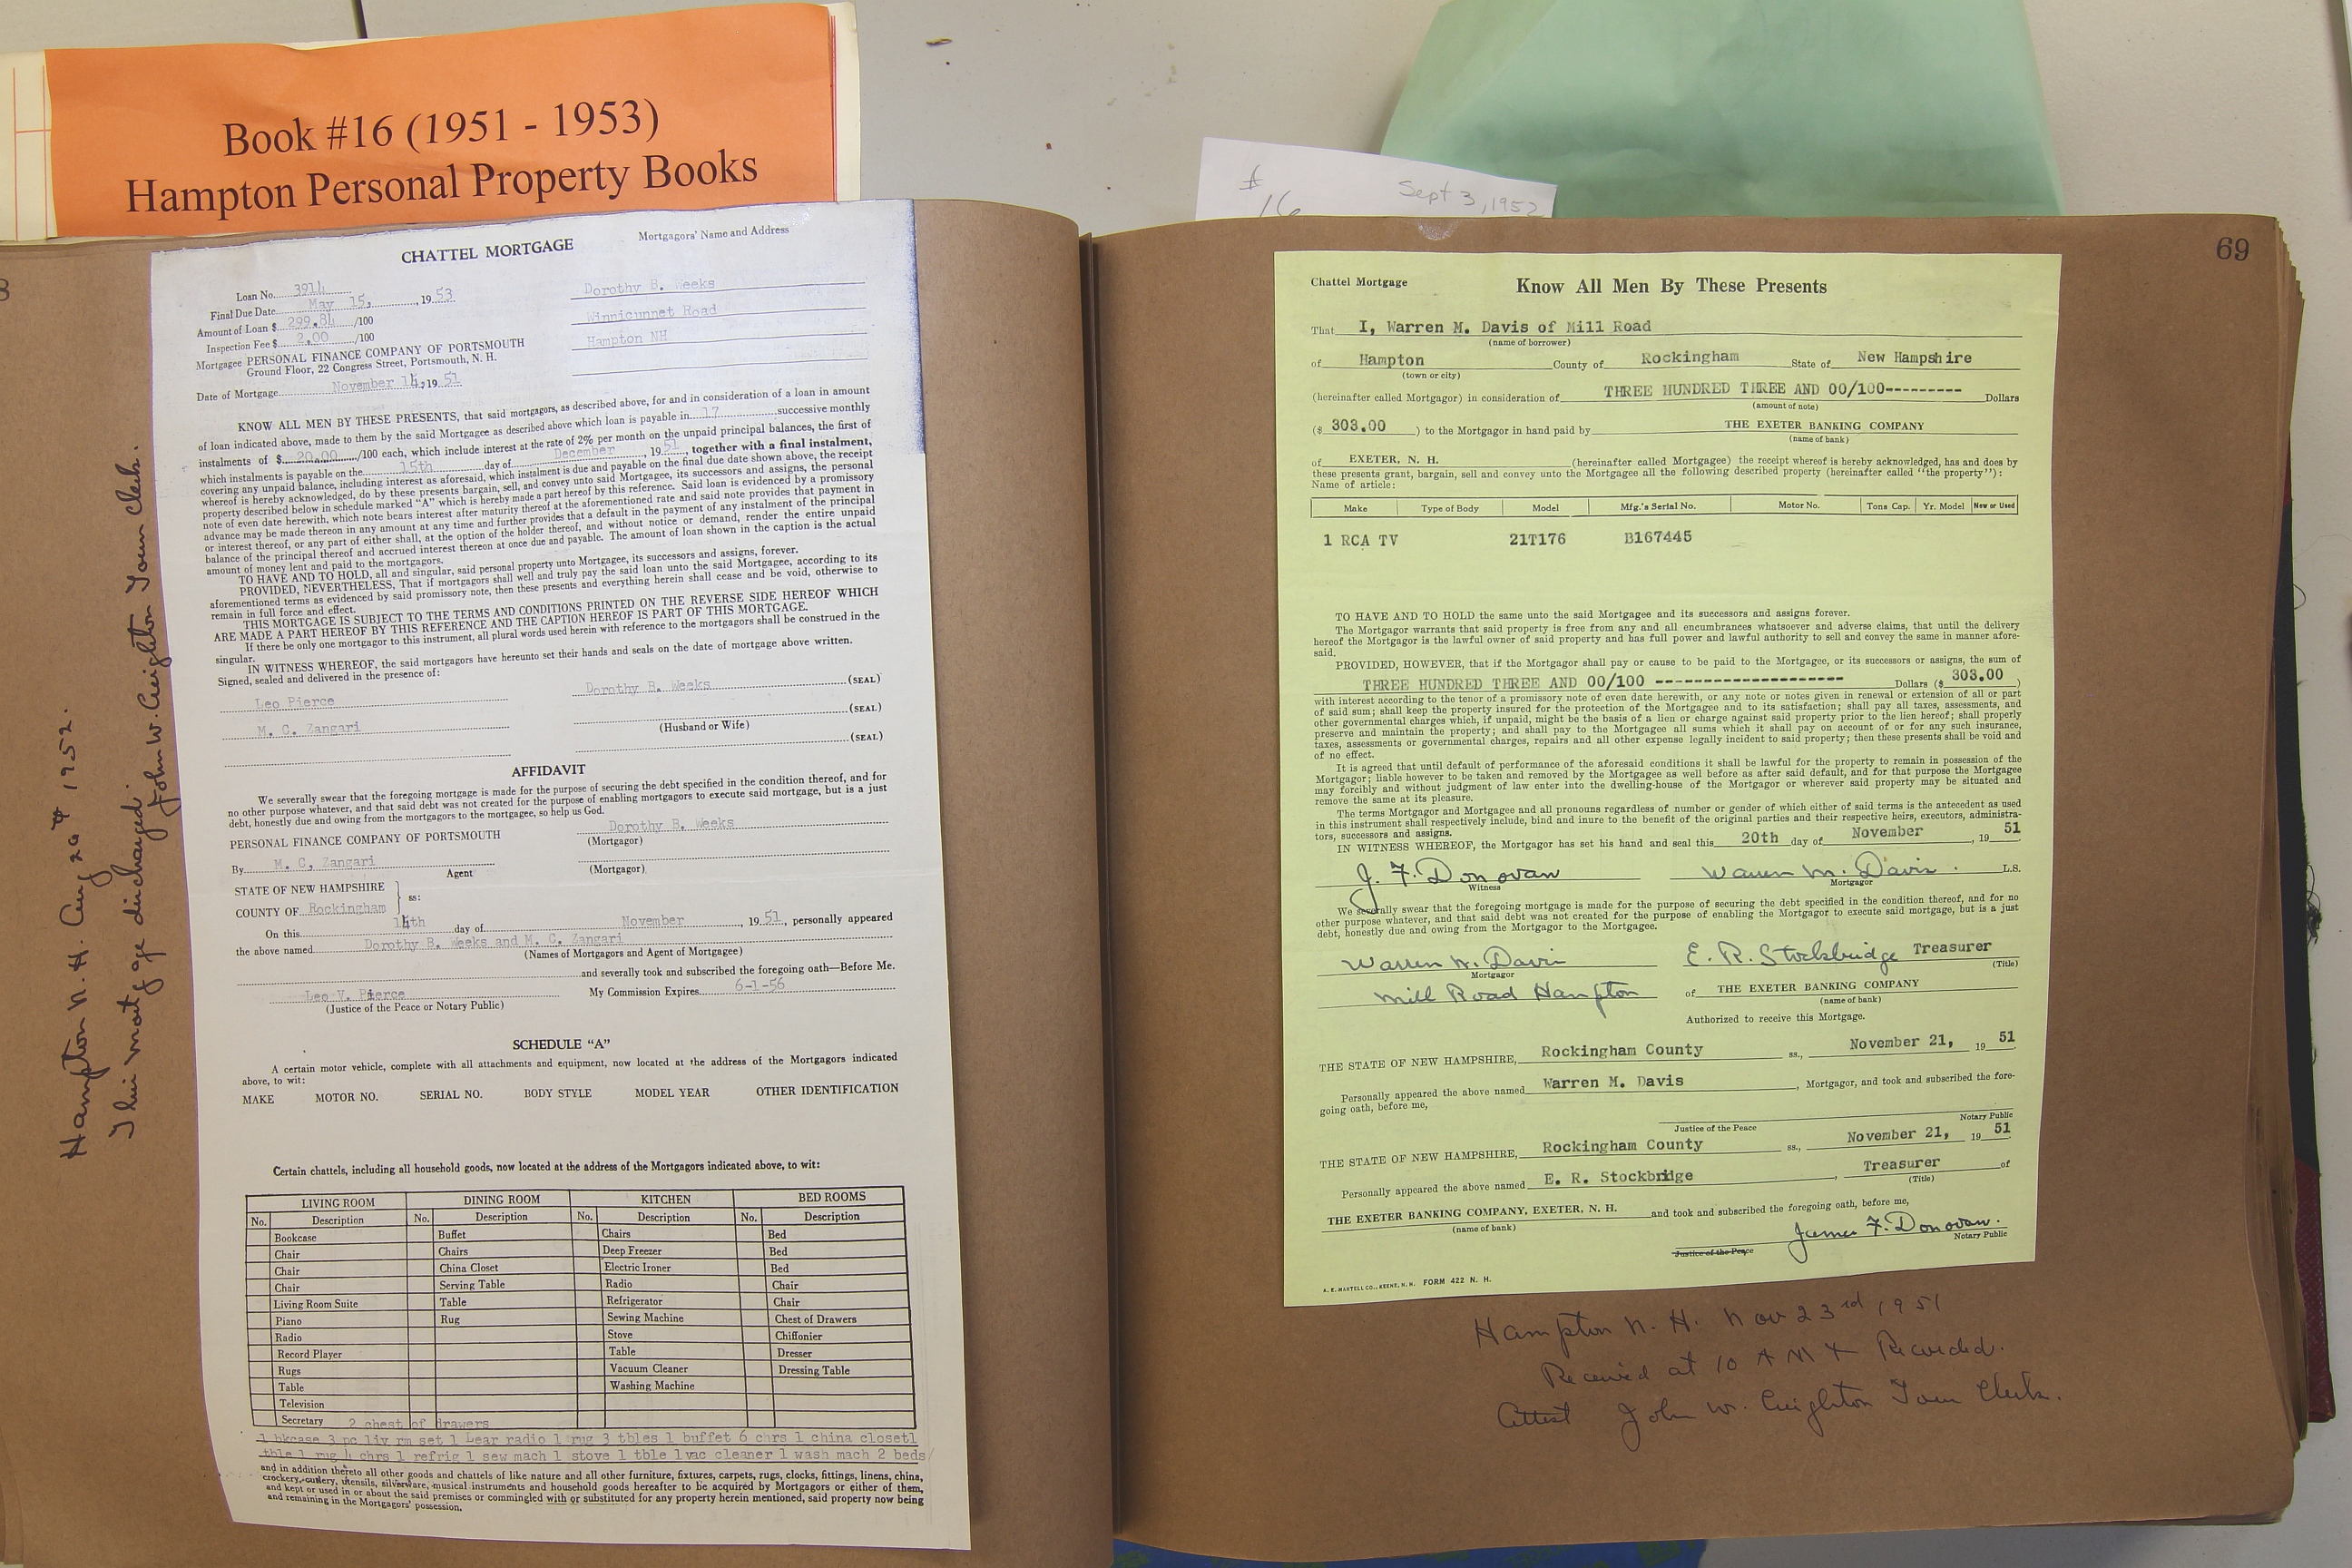 Book #16 (1951 - 1953)
Hampton Personal Property Books
16
Sept 3, 1952
CHATTEL MORTGAGE
Mortgagors' Name and Address
Loan No. 3914
Final Due Date May 15, , 19 53
Amount of Loan $ 299.84 /100
Inspection Fee $ 2.00 /100
Mortgagee PERSONAL FINANCE COMPANY OF PORTSMOUTH
Ground Floor, 22 Congress Street, Portsmouth, N. H.
Date of Mortgage November 14, 19 51
Dorothy B. Weeks
Winnicunnet Road
Hampton NH
KNOW ALL MEN BY THESE PRESENTS, that said mortgagors, as described above, for and in consideration of a loan in amount
of loan indicated above, made to them by the said Mortgagee as described above which loan is payable in 17 successive monthly
instalments of $ 20.00 /100 each, which include interest at the rate of 2% per month on the unpaid principal balances, the first of
which instalments is payable on the 15th day of December , 19 51, together with a final instalment,
covering any unpaid balance, including interest as aforesaid, which instalment is due and payable on the final due date shown above, the receipt
whereof is hereby acknowledged, do by these presents bargain, sell, and convey unto said Mortgagee, its successors and assigns, the personal
property described below in schedule marked "A" which is hereby made a part hereof by this reference. Said loan is evidenced by a promissory
note of even date herewith, which note bears interest after maturity thereof at the aforementioned rate and said note provides that payment in
advance may be made thereon in any amount at any time and further provides that a default in the payment of any instalment of the principal
or interest thereof, or any part of either shall, at the option of the holder thereof, and without notice or demand, render the entire unpaid
balance of the principal thereof and accrued interest thereon at once due and payable. The amount of loan shown in the caption is the actual
amount of money lent and paid to the mortgagors.
TO HAVE AND TO HOLD, all and singular, said personal property unto Mortgagee, its successors and assigns, forever.
PROVIDED, NEVERTHELESS, That if mortgagors shall well and truly pay the said loan unto the said Mortgagee, according to its
aforementioned terms as evidenced by said promissory note, then these presents and everything herein shall cease and be void, otherwise to
remain in full force and effect.
THIS MORTGAGE IS SUBJECT TO THE TERMS AND CONDITIONS PRINTED ON THE REVERSE SIDE HEREOF WHICH
ARE MADE A PART HEREOF BY THIS REFERENCE AND THE CAPTION HEREOF IS PART OF THIS MORTGAGE.
If there be only one mortgagor to this instrument, all plural words used herein with reference to the mortgagors shall be construed in the
singular.
IN WITNESS WHEREOF, the said mortgagors have hereunto set their hands and seals on the date of mortgage above written.
Signed, sealed and delivered in the presence of:
Leo Pierce
Dorothy B. Weeks (SEAL)
M. C. Zangari
(SEAL)
(Husband or Wife)
(SEAL)
AFFIDAVIT
We severally swear that the foregoing mortgage is made for the purpose of securing the debt specified in the condition thereof, and for
no other purpose whatever, and that said debt was not created for the purpose of enabling mortgagors to execute said mortgage, but is a just
debt, honestly due and owing from the mortgagors to the mortgagee, so help us God.
PERSONAL FINANCE COMPANY OF PORTSMOUTH
Dorothy B. Weeks
(Mortgagor)
By M. C, Zangari
Agent
(Mortgagor)
STATE OF NEW HAMPSHIRE
COUNTY OF Rockingham
ss:
On this 14th day of November , 19 51, personally appeared
the above named Dorothy B. Weeks and M. C. Zangari
(Names of Mortgagors and Agent of Mortgagee)
and severally took and subscribed the foregoing oath—Before Me.
Leo V. Pierce
My Commission Expires 6-1-56
(Justice of the Peace or Notary Public)
SCHEDULE "A"
A certain motor vehicle, complete with all attachments and equipment, now located at the address of the Mortgagors indicated
above, to wit:
MAKE MOTOR NO. SERIAL NO. BODY STYLE MODEL YEAR OTHER IDENTIFICATION
Certain chattels, including all household goods, now located at the address of the Mortgagors indicated above, to wit:
LIVING ROOM DINING ROOM KITCHEN BED ROOMS
No. Description No. Description No. Description No. Description
Bookcase Buffet Chairs Bed
Chair Chairs Deep Freezer Bed
Chair China Closet Electric Ironer Bed
Chair Serving Table Radio Chair
Living Room Suite Table Refrigerator Chair
Piano Rug Sewing Machine Chest of Drawers
Radio Stove Chiffonier
Record Player Table Dresser
Rugs Vacuum Cleaner Dressing Table
Table Washing Machine
Television
Secretary 2 chest of drawers
1 bkcase 3 pc liv rm set 1 Lear radio 1 rug 3 tbles 1 buffet 6 chrs 1 china closet1
tble 1 rug 4 chrs 1 refrig 1 sew mach 1 stove 1 tble 1vac cleaner 1 wash mach 2 beds/
and in addition thereto all other goods and chattels of like nature and all other furniture, fixtures, carpets, rugs, clocks, fittings, linens, china,
crockery, cutlery, utensils, silverware, musical instruments and household goods hereafter to be acquired by Mortgagors or either of them,
and kept or used in or about the said premises or commingled with or substituted for any property herein mentioned, said property now being
and remaining in the Mortgagors' possession.
Hampton N. H. Aug 20th 1952.
This mortgage discharged.
John W. Creighton Town Clerk.
69
Chattel Mortgage
Know All Men By These Presents
That I, Warren M. Davis of Mill Road
(name of borrower)
of Hampton County of Rockingham State of New Hampshire
(town or city)
(hereinafter called Mortgagor) in consideration of THREE HUNDRED THREE AND 00/100--------- Dollars
(amount of note)
($ 303.00 ) to the Mortgagor in hand paid by THE EXETER BANKING COMPANY
(name of bank)
of EXETER, N. H. (hereinafter called Mortgagee) the receipt whereof is hereby acknowledged, has and does by
these presents grant, bargain, sell and convey unto the Mortgagee all the following described property (hereinafter called "the property"):
Name of article:
Make Type of Body Model Mfg.'s Serial No. Motor No. Tons Cap. Yr. Model New or Used
1 RCA TV 21T176 B167445
TO HAVE AND TO HOLD the same unto the said Mortgagee and its successors and assigns forever.
The Mortgagor warrants that said property is free from any and all encumbrances whatsoever and adverse claims, that until the delivery
hereof the Mortgagor is the lawful owner of said property and has full power and lawful authority to sell and convey the same in manner afore-
said.
PROVIDED, HOWEVER, that if the Mortgagor shall pay or cause to be paid to the Mortgagee, or its successors or assigns, the sum of
THREE HUNDRED THREE AND 00/100 -------------------- Dollars ($ 303.00 )
with interest according to the tenor of a promissory note of even date herewith, or any note or notes given in renewal or extension of all or part
of said sum; shall keep the property insured for the protection of the Mortgagee and to its satisfaction; shall pay all taxes, assessments, and
other governmental charges which, if unpaid, might be the basis of a lien or charge against said property prior to the lien hereof; shall properly
preserve and maintain the property; and shall pay to the Mortgagee all sums which it shall pay on account of or for any such insurance,
taxes, assessments or governmental charges, repairs and all other expense legally incident to said property; then these presents shall be void and
of no effect.
It is agreed that until default of performance of the aforesaid conditions it shall be lawful for the property to remain in possession of the
Mortgagor; liable however to be taken and removed by the Mortgagee as well before as after said default, and for that purpose the Mortgagee
may forcibly and without judgment of law enter into the dwelling-house of the Mortgagor or wherever said property may be situated and
remove the same at its pleasure.
The terms Mortgagor and Mortgagee and all pronouns regardless of number or gender of which either of said terms is the antecedent as used
in this instrument shall respectively include, bind and inure to the benefit of the original parties and their respective heirs, executors, administra-
tors, successors and assigns.
IN WITNESS WHEREOF, the Mortgagor has set his hand and seal this 20th day of November , 19 51
J. F. Donovan Warren M. Davis. L.S.
Witness Mortgagor
We severally swear that the foregoing mortgage is made for the purpose of securing the debt specified in the condition thereof, and for no
other purpose whatever, and that said debt was not created for the purpose of enabling the Mortgagor to execute said mortgage, but is a just
debt, honestly due and owing from the Mortgagor to the Mortgagee.
Warren M. Davis E. R. Stockbridge Treasurer
Mortgagor (Title)
Mill Road Hampton of THE EXETER BANKING COMPANY
(name of bank)
Authorized to receive this Mortgage.
THE STATE OF NEW HAMPSHIRE, Rockingham County ss., November 21, 19 51
Personally appeared the above named Warren M. Davis , Mortgagor, and took and subscribed the fore-
going oath, before me,
Notary Public
Justice of the Peace
THE STATE OF NEW HAMPSHIRE, Rockingham County ss., November 21, 19 51
Personally appeared the above named E. R. Stockbridge , Treasurer of
(Title)
THE EXETER BANKING COMPANY, EXETER, N. H. and took and subscribed the foregoing oath, before me,
(name of bank)
James F. Donovan.
Justice of the Peace Notary Public
A. E. MARTELL CO., KEENE, N. H. FORM 422 N. H.
Hampton N. H. Nov 23rd 1951
Received at 10 A M & Recorded.
Attest John W. Creighton Town Clerk.